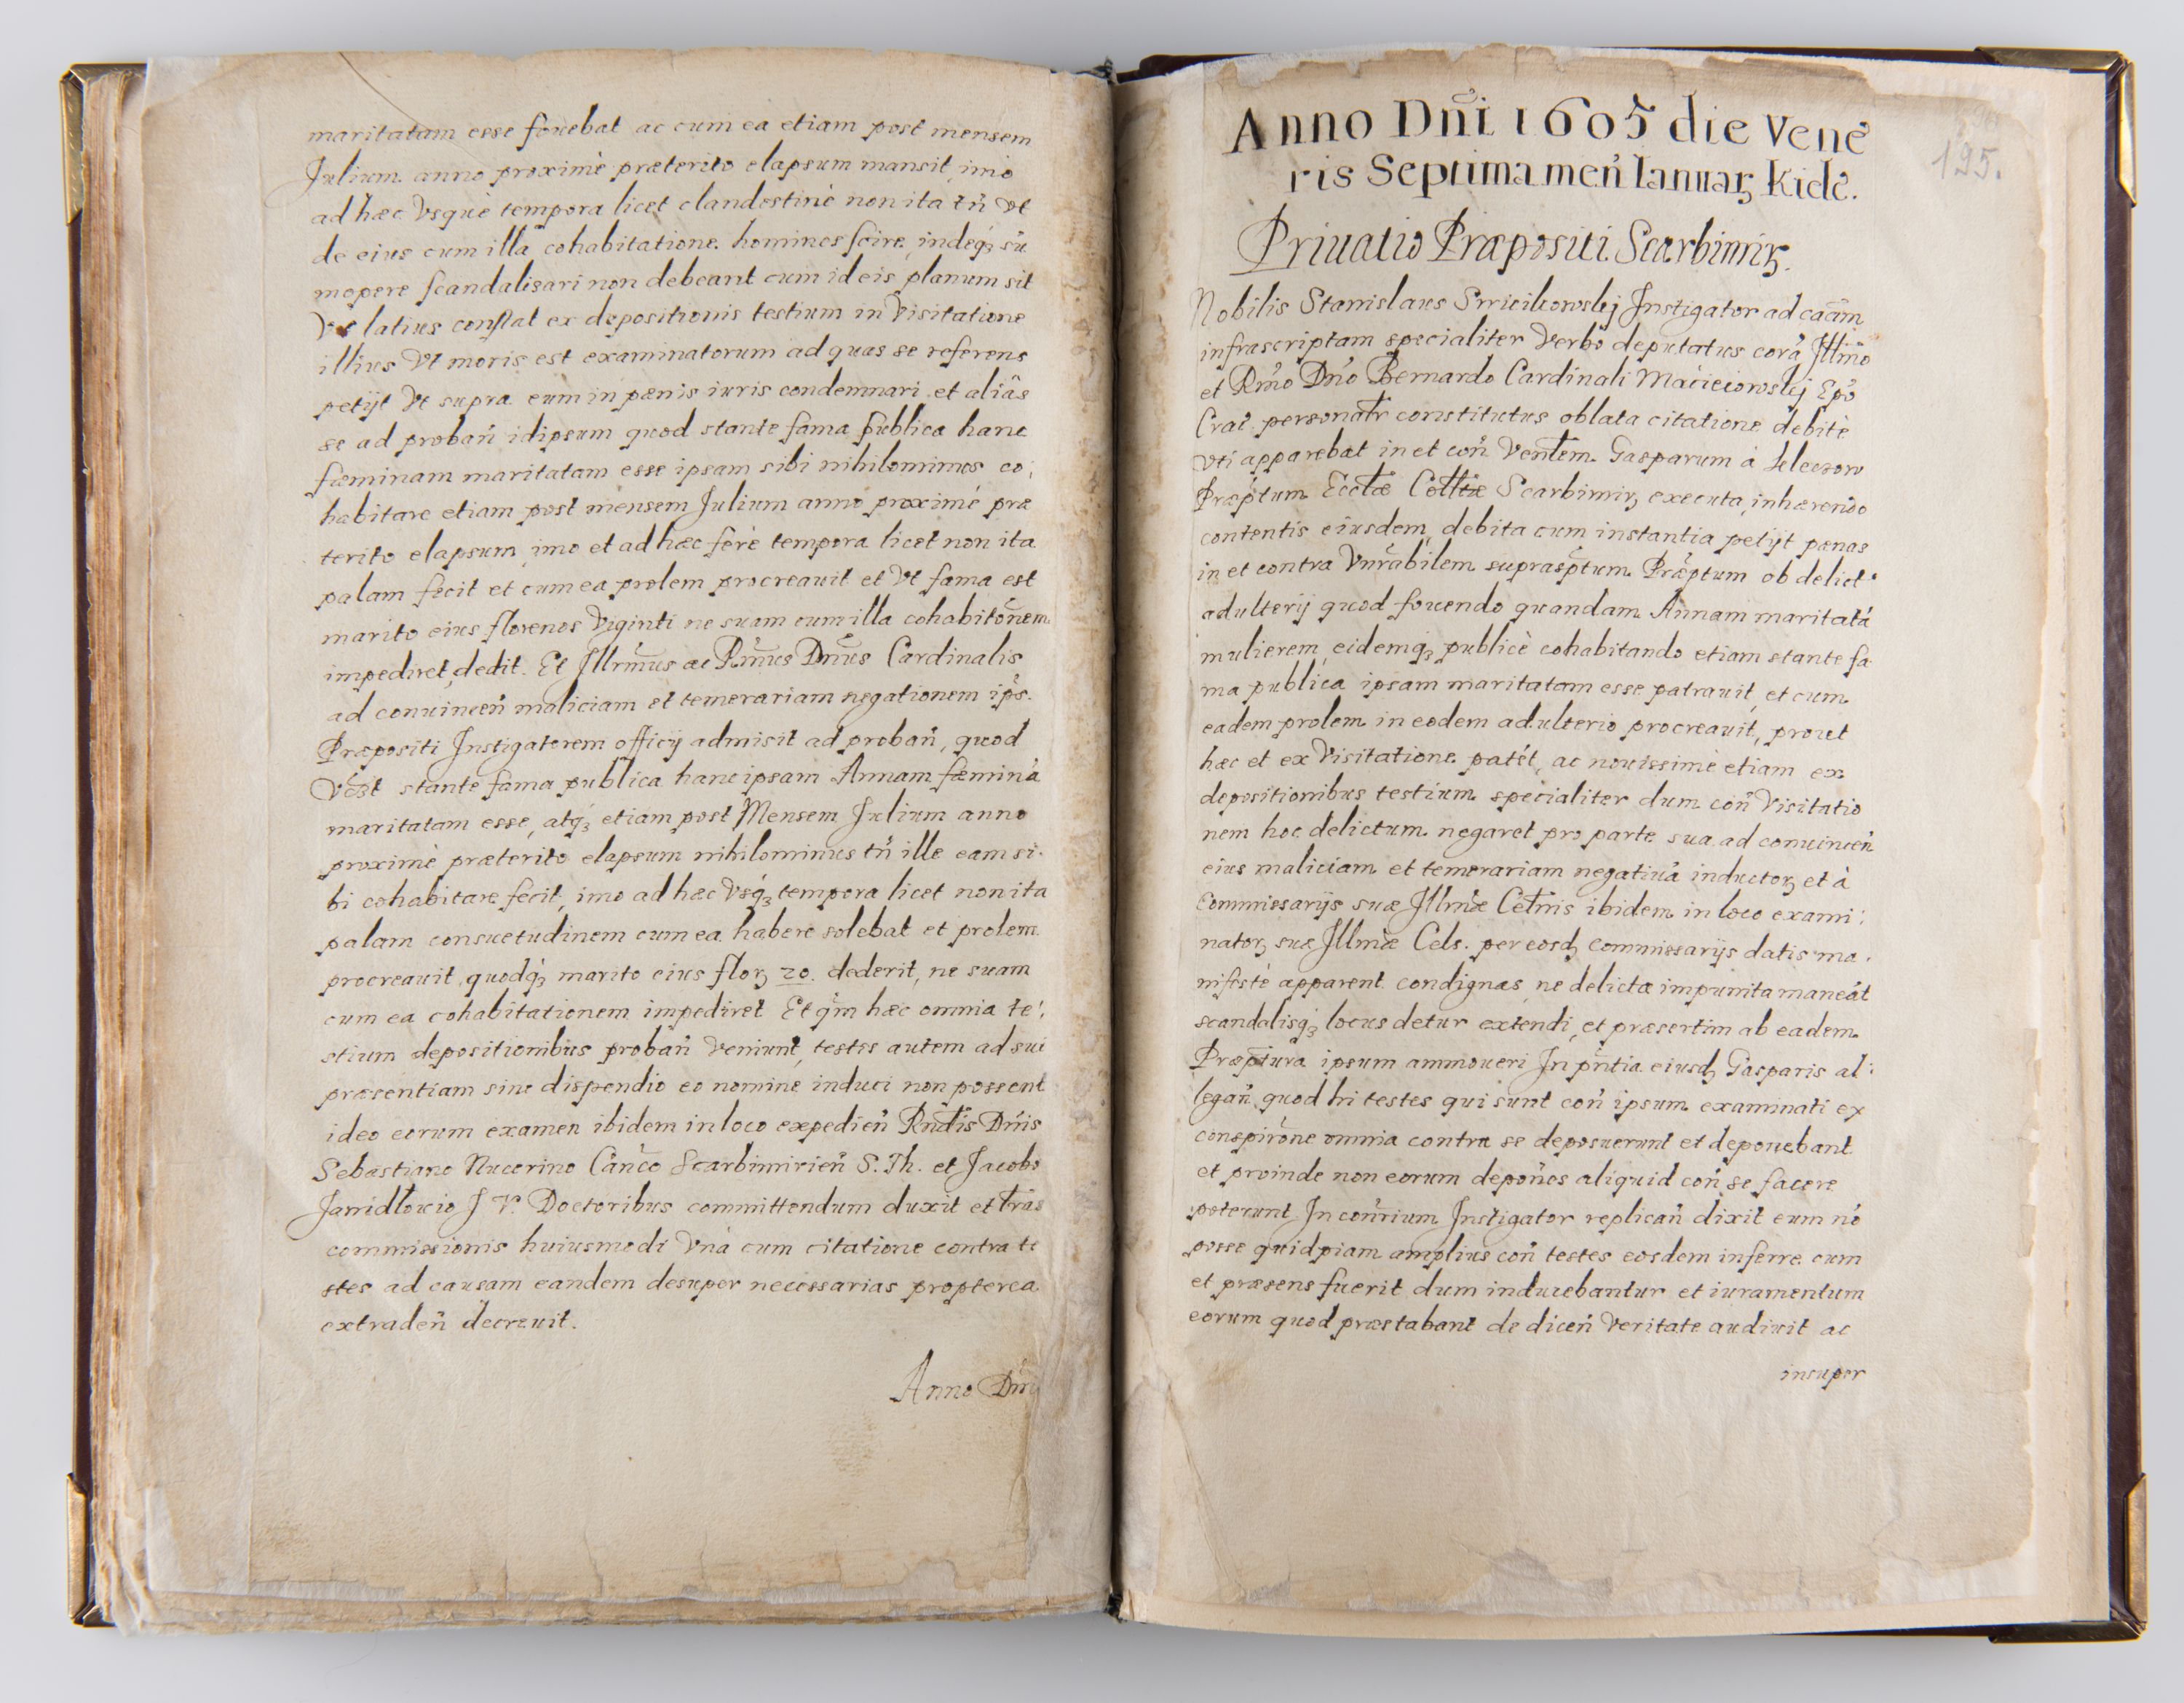 maritatam esse fouebat ac cum ea etiam post mensem
Julium anno proximè præterito elapsum mansit, imò
ad hæc vsquè tempora licet clandestinè non ita tñ vt
de eius cum illa cohabitatione homines scire, indeqꝫ sũ
mopere scandalisari non debeant cum id eis planum sit
Vt latius constat ex depositionis testium in Visitatione
illius vt moris est examinatorum ad quas se referens
petijt vt supra eum in pœnis iuris condemnari et aliâs
se ad probañ idipsum quod stante fama publica hanc
fæminam maritatam esse ipsam sibi nihilominus co:
habitare etiam post mensem Julium anno proximè præ
terito elapsum, imo et ad hæc ferè tempora licet non ita
palam fecit et cum ea prolem procreauit et vt fama est
marito eius florenos viginti ne suam cum illa cohabitõnem
impediret, dedit. Et Illrm̃us ac Rm̃us Dnũs Cardinalis
ad conuinceñ maliciam et temerariam negationem ip̃s.
Præpositi Instigatorem officij admisit ad probañ, quod
stante fama publica hanc ipsam Annam fæminã
maritatam esse, atqꝫ etiam post Mensem Julium anno
proximè præterito elapsum nihilominus tñ ille eam si:
bi cohabitare fecit, imo ad hæc vsqꝫ tempora licet non ita
palam consuetudinem cum ea habere solebat et prolem
procreauit, quodqꝫ marito eius florꝫ 20. dederit, ne suam
cum ea cohabitationem impediret Et qm̃ hæc omnia te:
stium depositionibus probañ veniunt, testes autem ad sui
præsentiam sine dispendio eo nomine induci non possent
ideo eorum examen ibidem in loco expedieñ Rndis Dñis
Sebastiano Nucerino Canc̃o Scarbimirieñ S. Th. et Jacobo
Janidłouio J V. Doctoribus committendum duxit et lr̃as
commissionis huiusmodi vnà cum citatione contra te
stes ad causam eandem desuper necessarias propterea
extradeñ decreuit.
Anno Dñi
195.
Anno Dñi 1605 die Vene
ris Septima meñ Ianuarꝫ Kielc̃.
Priuatio Præpositi Scarbimirꝫ.
Nobilis Stanislaus Instigator ad caãm
infrascriptam specialiter verbo deputatus corã Illmõ
et Rm̃o Dño Bernardo Cardinali Macieiowskij Epõ
Crac̃. personalr̃ constitutus oblata citatione debitè
vti apparebat in et coñ Venlem. Gasparum à
Præptum Eccłæ Collæ Scarbimirꝫ executa, inhærendo
contentis eiusdem, debita cum instantia petijt pænas
in et contra Vnrãbilem suprasp̃tum Præptum ob delict.
adulterij quod fouendo quandam Annam maritatã
mulierem, eidemqꝫ publicè cohabitando etiam stante fa
ma publica ipsam maritatam esse patrauit, et cum
eadem prolem in eodem adulterio procreauit, prout
hæc et ex Visitatione patet, ac nouissimè etiam ex
depositionibus testium specialiter dum coñ Visitatio
nem hoc delictum negaret pro parte sua ad conuinceñ
eius maliciam et temerariam negatiuã inductorꝫ et à
Commissarijs suæ Illmæ Celnis ibidem in loco exami:
natorꝫ suæ Illmæ Cels. per eosdꝫ commissarijs datis ma:
nifestè apparent condignas, ne delicta impunita maneãt
scandalisqꝫ locus detur extendi, et præsertim ab eadem
Præptura ipsum ammoueri In pñtia eiusdꝫ Gasparis al:
legañ quod hi testes qui sunt coñ ipsum examinati ex
conspirõne omnia contra se deposuerunt et deponebant
et proinde non eorum depoñes aliquid coñ se facere
poterunt. In coñrium Instigator replicañ dixit eum nõ
posse quidpiam amplius coñ testes eosdem inferre cum
et præsens fuerit dum inducebantur et iuramentum
eorum quod præstabant de diceñ veritate audiuit ac
insuper